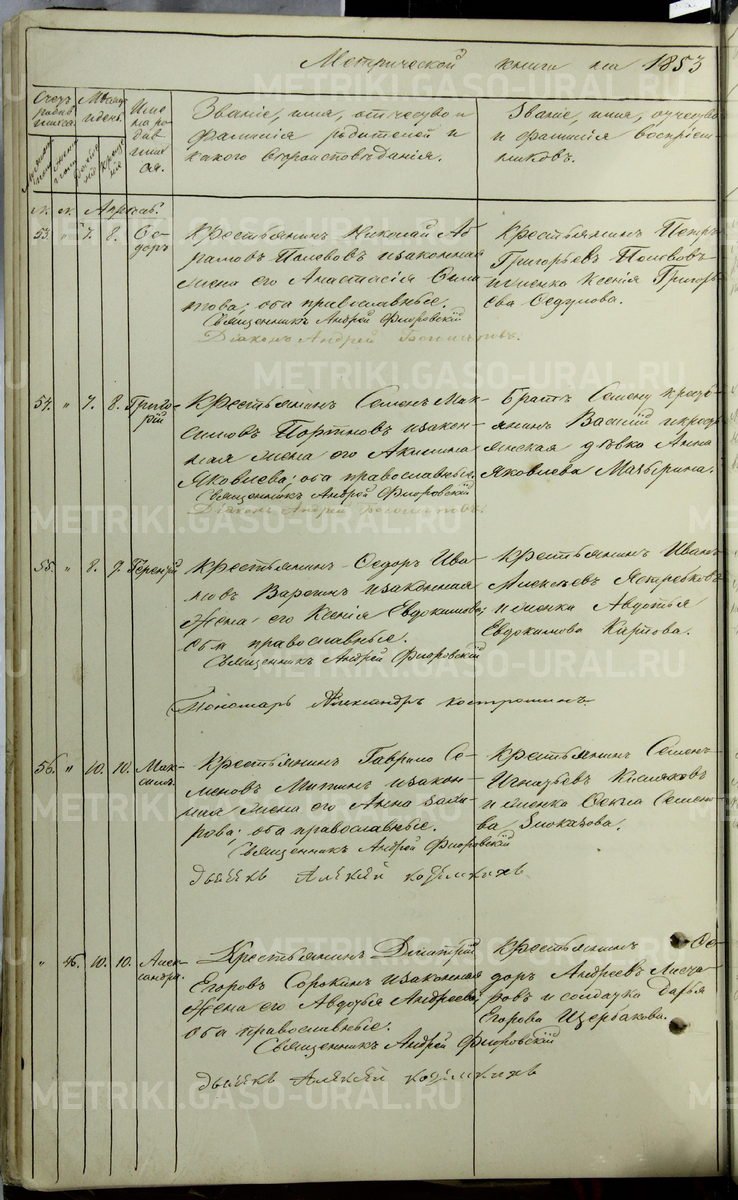 Метрической книги на 1853
Счетъ родившихся.
Мѣсяцъ и день.
Имена родившихся.
Званіе, имя, отчество и фамилія родителей и какого вѣроисповѣданія.
Званіе, имя, отчество и фамилія воспріемниковъ.
м. ж. Апрѣль.
53. " 7. 8. Ѳе-
доръ
Крестьянинъ Николай Аб
рамовъ Поповъ и законная
жена его Анастасія
оба православные.
Священникъ Андрей Флоровскій
Діаконъ Андрей
Крестьянинъ Петръ
Григорьевъ Поповъ
и женка Ксенія Григорь
ева Ѳедулова.
54. " 7. 8. Григо-
рій
Крестьянинъ Семенъ Мак-
симовъ Портновъ и закон-
ная жена его Акилина
Яковлева; оба православные.
Священникъ Андрей Флоровскій
Діаконъ Андрей
Братъ Семену кресть
янинъ Василій и кресть
янская дѣвка Анна
Яковлева Мазырина.
55. " 8. 9. Терентій
Крестьянинъ Ѳедоръ Ива-
новъ и законная
жена его Ксенія Евдокимова;
оба православные.
Священникъ Андрей Флоровскій
Пономарь Александръ Костроминъ
Крестьянинъ Иванъ
Алексѣевъ Ястребковъ
и женка Авдотья
Евдокимова Карпова.
56. " 10. 10. Мак-
симъ.
Крестьянинъ Гаврило Се-
меновъ Митинъ и закон-
ная жена его Анна Заха-
рова; оба православные.
Священникъ Андрей Флоровскій
дьячекъ Алексѣй
Крестьянинъ Семенъ
Игнатьевъ Кисляковъ
и женка Ѳекла Семено
ва Злоказова.
" 46. 10. 10. Алек-
сандра.
Крестьянинъ Димитрій
Егоровъ Сорокинъ и законная
жена его Авдотья Андреева;
оба православные.
Священникъ Андрей Флоровскій
дьячекъ Алексѣй
Крестьянинъ Ѳе-
доръ Андреевъ
и солдатка Дарья
Егорова Щербакова.
METRIKI.GASO-URAL.RU